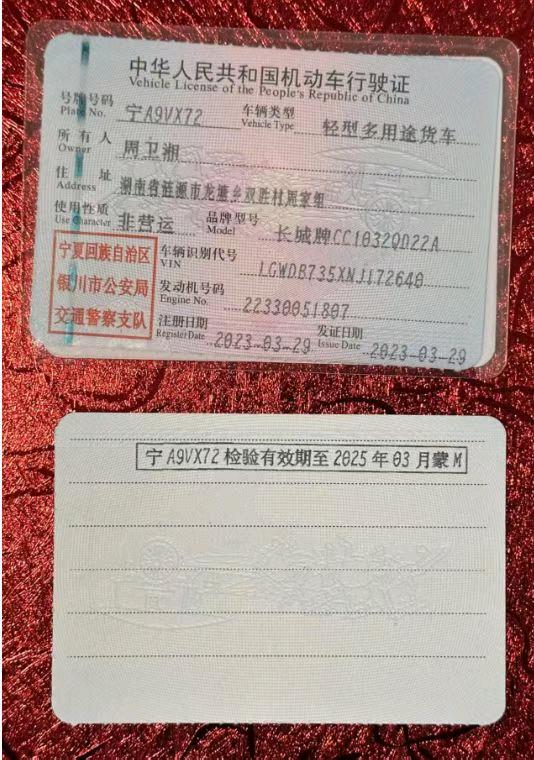 中华人民共和国机动车行驶证
Vehicle License of the People's Republic of China
号牌号码 宁A9VX72 车辆类型 轻型多用途货车
Plate No. Vehicle Type
所有人 周卫湘
Owner
住址 湖南省涟源市龙塘乡双胜村周家组
Address
使用性质 非营运 品牌型号 长城牌CC1032QD22A
Use Character Model
宁夏回族自治区
银川市公安局
交通警察支队
车辆识别代号 LGWDB735XNJ172640
VIN
发动机号码 22330051807
Engine No.
注册日期 2023-03-29 发证日期 2023-03-29
Register Date Issue Date
宁A9VX72检验有效期至2025年03月蒙M